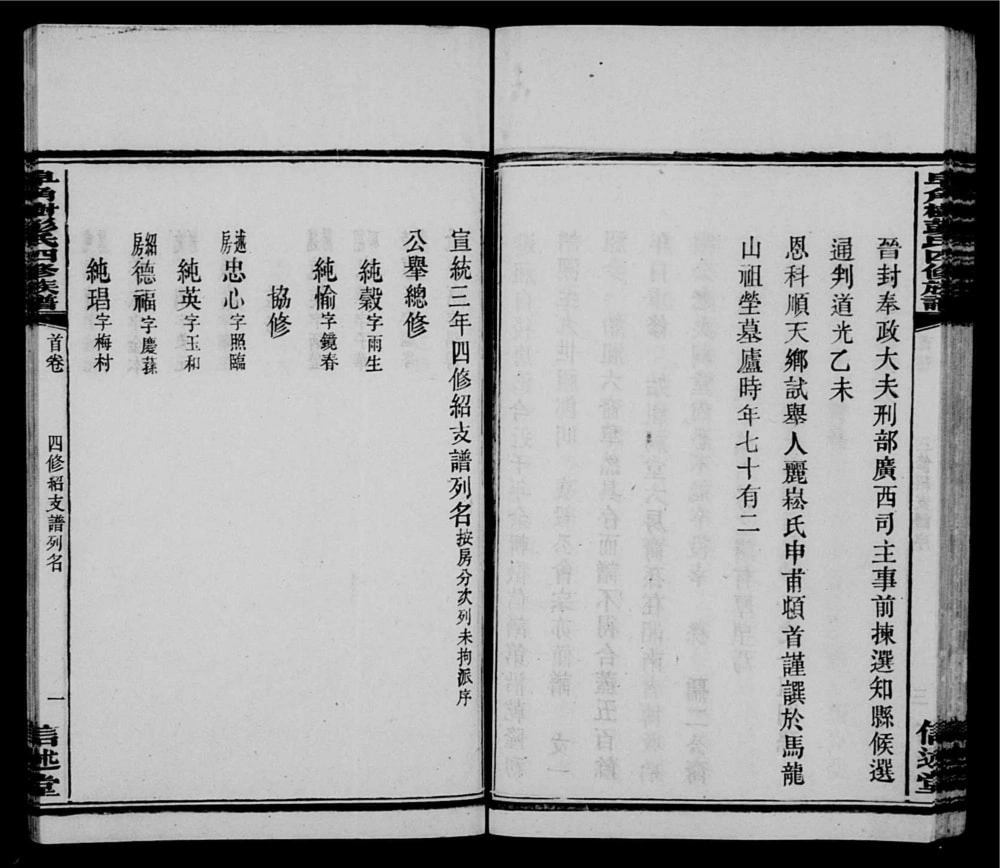 晉封奉政大夫刑部廣西司主事前揀選知縣候選
通判道光乙未
恩科順天鄉試舉人麗崧氏申甫頓首謹譔於馬龍
山祖塋墓廬時年七十有二
信述堂
宣統三年四修紹支譜列名按房分次列未拘派序
公舉總修
純穀字雨生
純愉字鏡春
協修
越房忠心字照臨
純英字玉和
細房德福字慶蓀
純琩字梅村
皂角樹彭氏四修族譜
首卷
四修紹支譜列名
一
信述堂